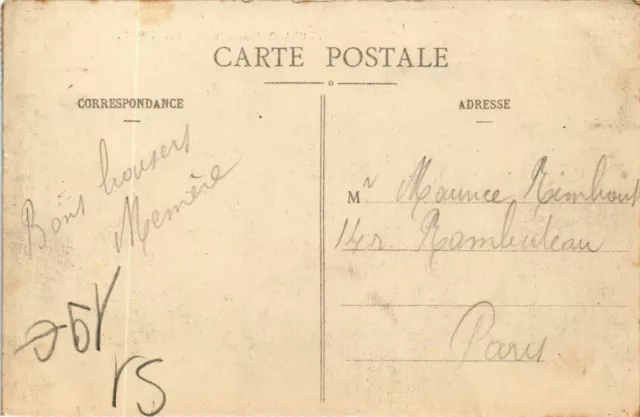 CARTE POSTALE
CORRESPONDANCE
Bons
Memère
15
ADRESSE
Mr Maurice
14 r Rambuteau
Paris